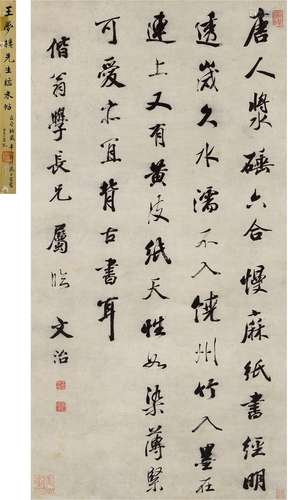 唐人漿硾六合慢麻紙書經明
透歲久水濡不入饒州竹入墨在
連上又有黃皮紙天性如染薄緊
可愛亦宜背古書耳
偕翁學長兄屬臨 文治
王夢樓先生臨米帖